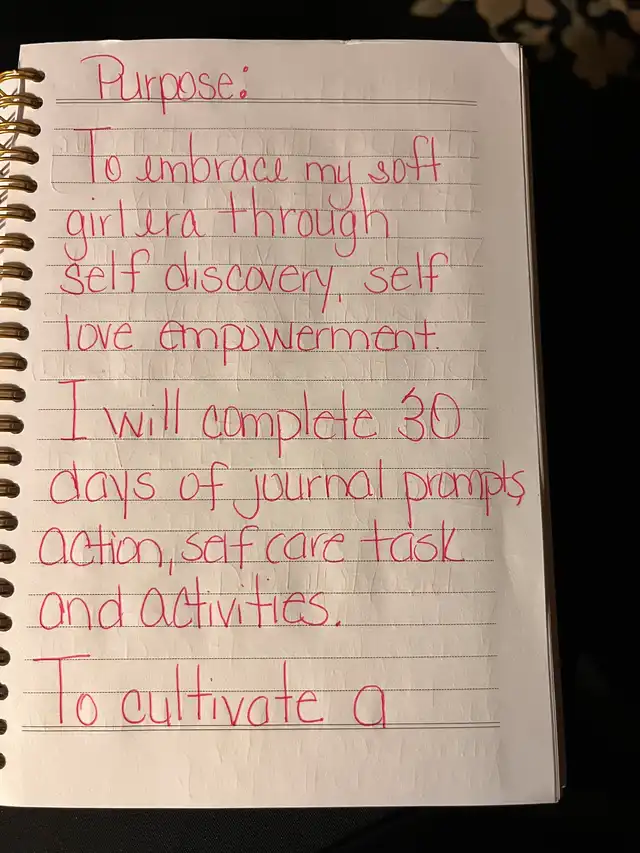 Purpose:
To embrace my soft
girl era through
self discovery, self
love empowerment.
I will complete 30
days of journal prompts,
action, self care task
and activities.
To cultivate a